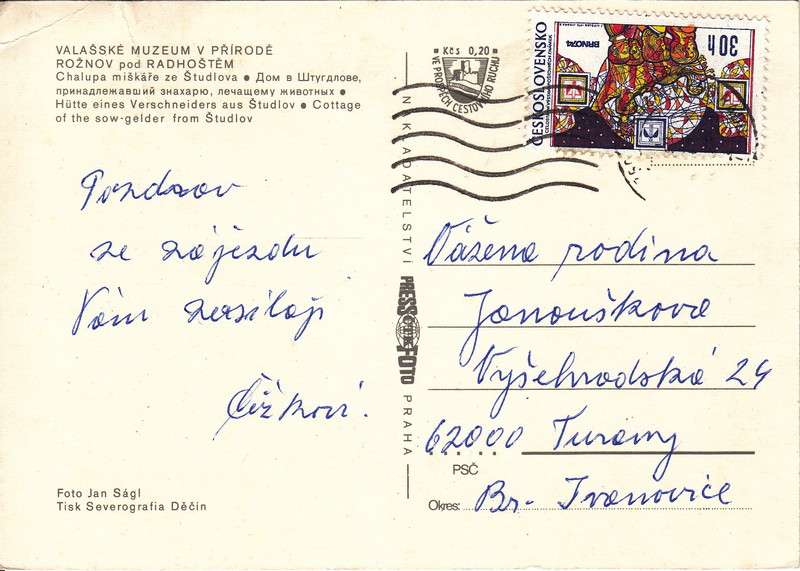 VALAŠSKÉ MUZEUM V PŘÍRODĚ
ROŽNOV pod RADHOŠTĚM
Chalupa miškáře ze Študlova • Дом в Штудлове,
принадлежавший знахарю, лечащему животных •
Hütte eines Verschneiders aus Študlov • Cottage
of the sow-gelder from Študlov
Pozdrav
ze zájezdu
Vám zasílají
Čížkovi.
Foto Jan Ságl
Tisk Severografia Děčín
NAKLADATELSTVÍ PRESSFOTO PRAHA
ČTK
Kčs 0,20
VE PROSPĚCH CESTOVNÍHO RUCHU
ČESKOSLOVENSKO
BRNO 74
30 h
Vážena rodina
Janouškova
Vyšehradská 24
62000 Turany
PSČ
Okres: Br- Ivanovice